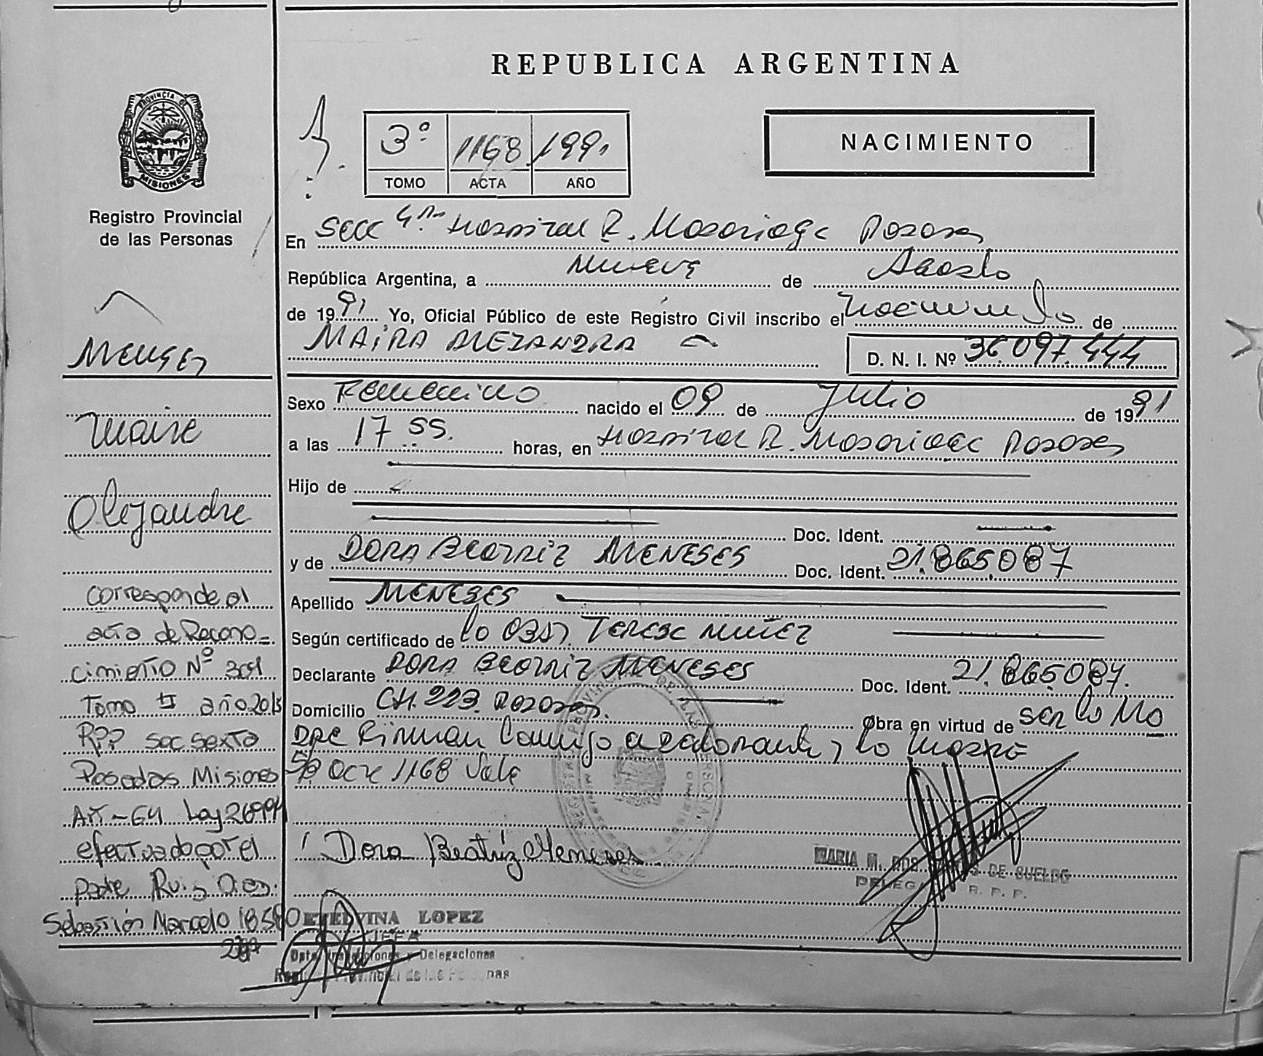 REPUBLICA ARGENTINA
PROVINCIA DE
MISIONES
Registro Provincial
de las Personas
3º 1168 199
TOMO ACTA AÑO
NACIMIENTO
En Secc 4ta Hospital R. Madariaga Posadas
República Argentina, a nueve de Agosto
de 1991. Yo, Oficial Público de este Registro Civil inscribo el nacimiento de
MAIRA ALEJANDRA D. N. I. Nº 36.097.444
Sexo Femenino nacido el 09 de Julio de 1991
a las 17 55. horas, en Hospital R. Madariaga Posadas
Hijo de
Doc. Ident.
y de DORA BEATRIZ MENESES Doc. Ident. 21.865.087
Apellido MENESES
Según certificado de la Obst. TERESA NUÑEZ
Declarante DORA BEATRIZ MENESES Doc. Ident. 21.865.087.
Domicilio CH. 223. Posadas. Obra en virtud de ser la Ma
dre Firman conmigo la
Acta 1168 Vale
Dora Beatriz Meneses
MARIA M. DOS DE SUELDO
DELEGA R. P. P.
Meneses
Maira
Alejandra
Corresponde al
acta de Recono-
cimiento Nº 301
Tomo II año 2015
RPP Secc sexta
Posadas Misiones
Art-64 Ley 26994
efectuado por el
padre Ruiz Diaz
Sebastián Marcelo
ETELVINA LOPEZ
JEFA
Delegaciones